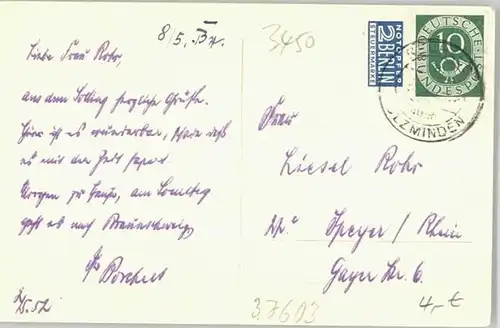 8/5. IV.
3450
Liebe Frau Rohr,
aus dem Solling herzliche Grüße.
Hier ist es wunderbar, schade daß
es mit der Zeit
Morgen zu Hause, am Sonntag
geht es nach Braunschweig
Borchert
5.52
NOTOPFER
2 BERLIN
STEUERMARKE
DEUTSCHE
10
BUNDESPOST
HOLZMINDEN
Frau
Liesel Rohr
Speyer / Rhein
Gayer Str. 6.
37603
4,- €